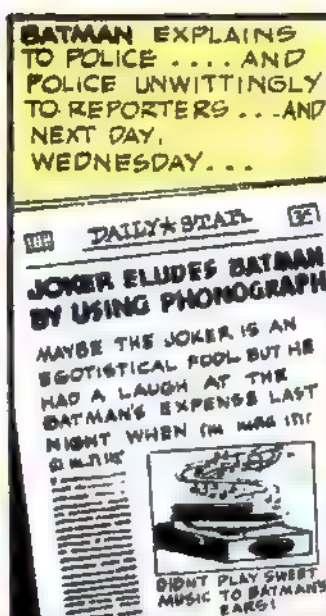 BATMAN EXPLAINS
TO POLICE .... AND
POLICE UNWITTINGLY
TO REPORTERS ... AND
NEXT DAY,
WEDNESDAY...
DAILY★STAR
JOKER ELUDES BATMAN
BY USING PHONOGRAPH
MAYBE THE JOKER IS AN
EGOTISTICAL FOOL BUT HE
HAD A LAUGH AT THE
BATMAN'S EXPENSE LAST
NIGHT WHEN
DIDN'T PLAY SWEET
MUSIC TO BATMAN'S
EARS!